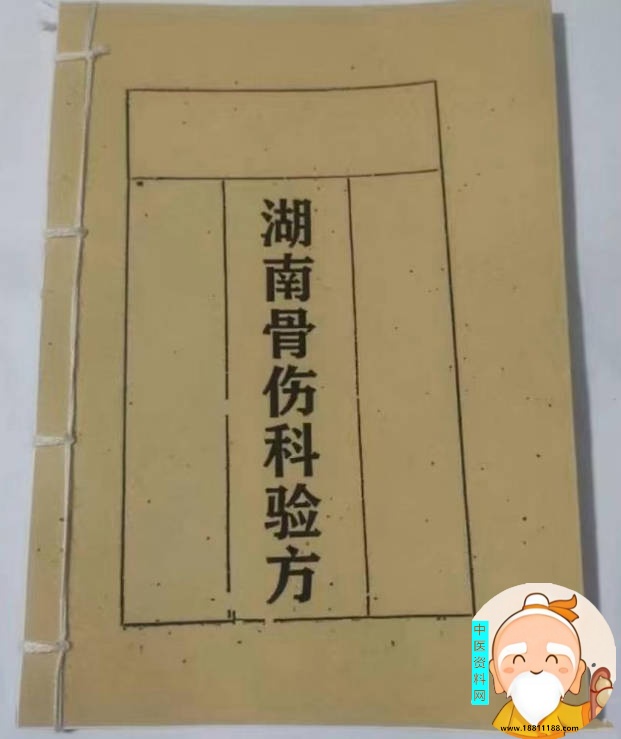 湖南骨伤科验方
中医资料网
www.18811188.com